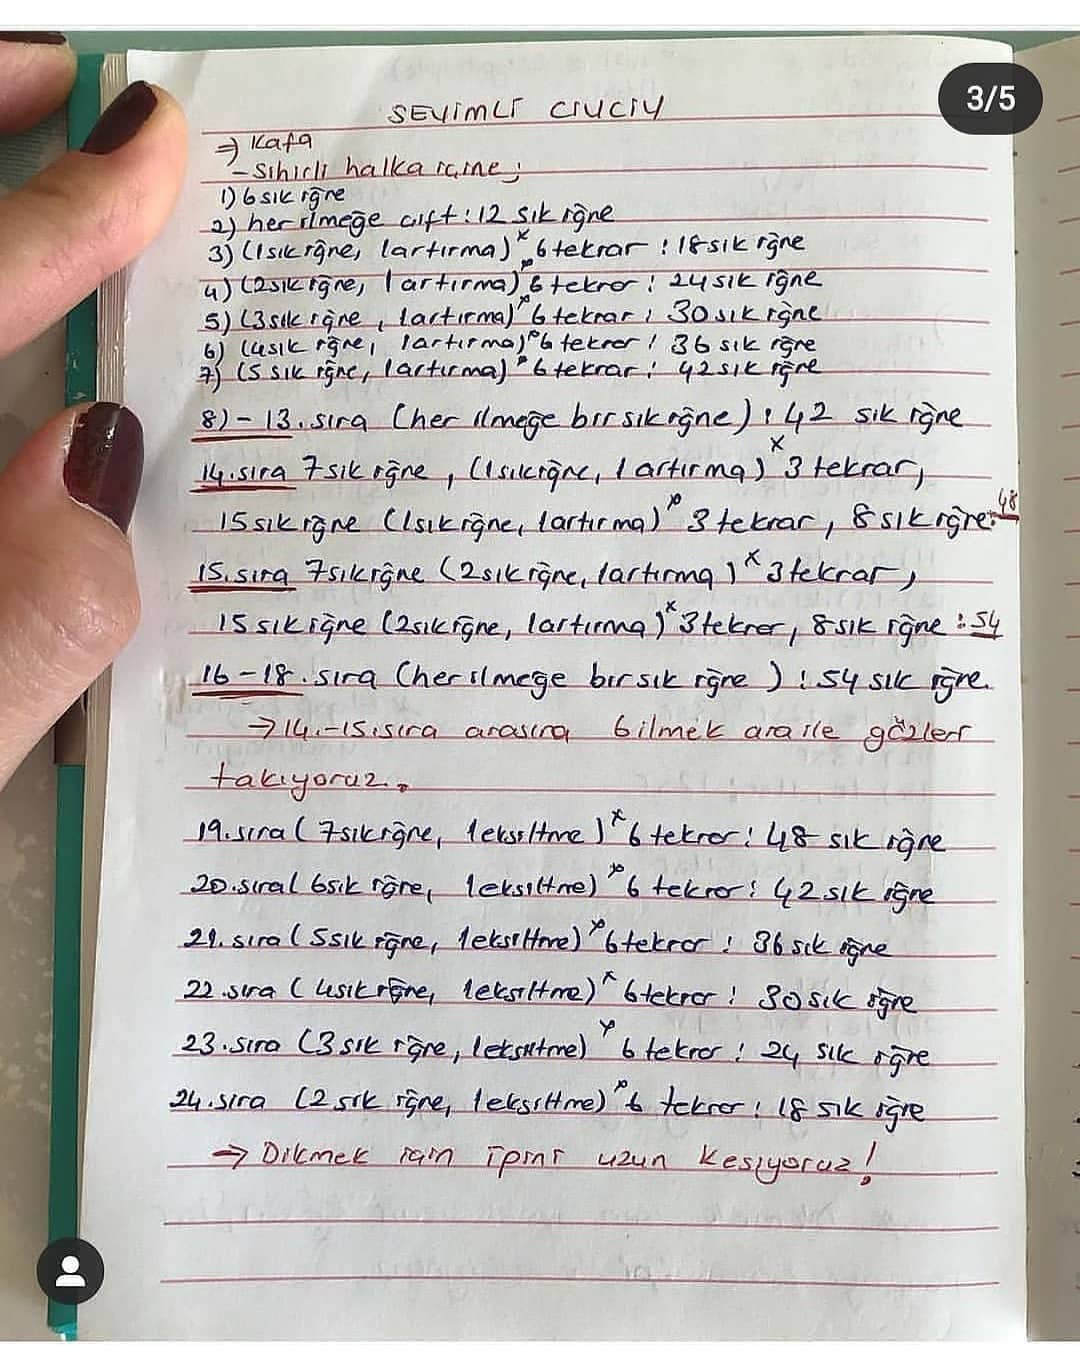 3/5
SEVİMLİ CİVCİV
⇒ Kafa
- Sihirli halka içine;
1) 6 sık iğne
2) her ilmeğe çift : 12 sık iğne
3) (1 sık iğne, 1 artırma) x 6 tekrar : 18 sık iğne
4) (2 sık iğne, 1 artırma) x 6 tekrar : 24 sık iğne
5) (3 sık iğne, 1 artırma) x 6 tekrar : 30 sık iğne
6) (4 sık iğne, 1 artırma) x 6 tekrar : 36 sık iğne
7) (5 sık iğne, 1 artırma) x 6 tekrar : 42 sık iğne
8) - 13. sıra (her ilmeğe bir sık iğne) : 42 sık iğne
14. sıra 7 sık iğne, (1 sık iğne, 1 artırma) x 3 tekrar,
15 sık iğne (1 sık iğne, 1 artırma) x 3 tekrar, 8 sık iğne : 48
15. sıra 7 sık iğne (2 sık iğne, 1 artırma) x 3 tekrar,
15 sık iğne (2 sık iğne, 1 artırma) x 3 tekrar, 8 sık iğne : 54
16 - 18. sıra (her ilmeğe bir sık iğne) : 54 sık iğne.
→ 14.-15. sıra arasına 6 ilmek ara ile gözleri
takıyoruz.
19. sıra (7 sık iğne, 1 eksiltme) x 6 tekrar : 48 sık iğne
20. sıra (6 sık iğne, 1 eksiltme) x 6 tekrar : 42 sık iğne
21. sıra (5 sık iğne, 1 eksiltme) x 6 tekrar : 36 sık iğne
22. sıra (4 sık iğne, 1 eksiltme) x 6 tekrar : 30 sık iğne
23. sıra (3 sık iğne, 1 eksiltme) x 6 tekrar : 24 sık iğne
24. sıra (2 sık iğne, 1 eksiltme) x 6 tekrar : 18 sık iğne
→ Dikmek için ipini uzun kesiyoruz!